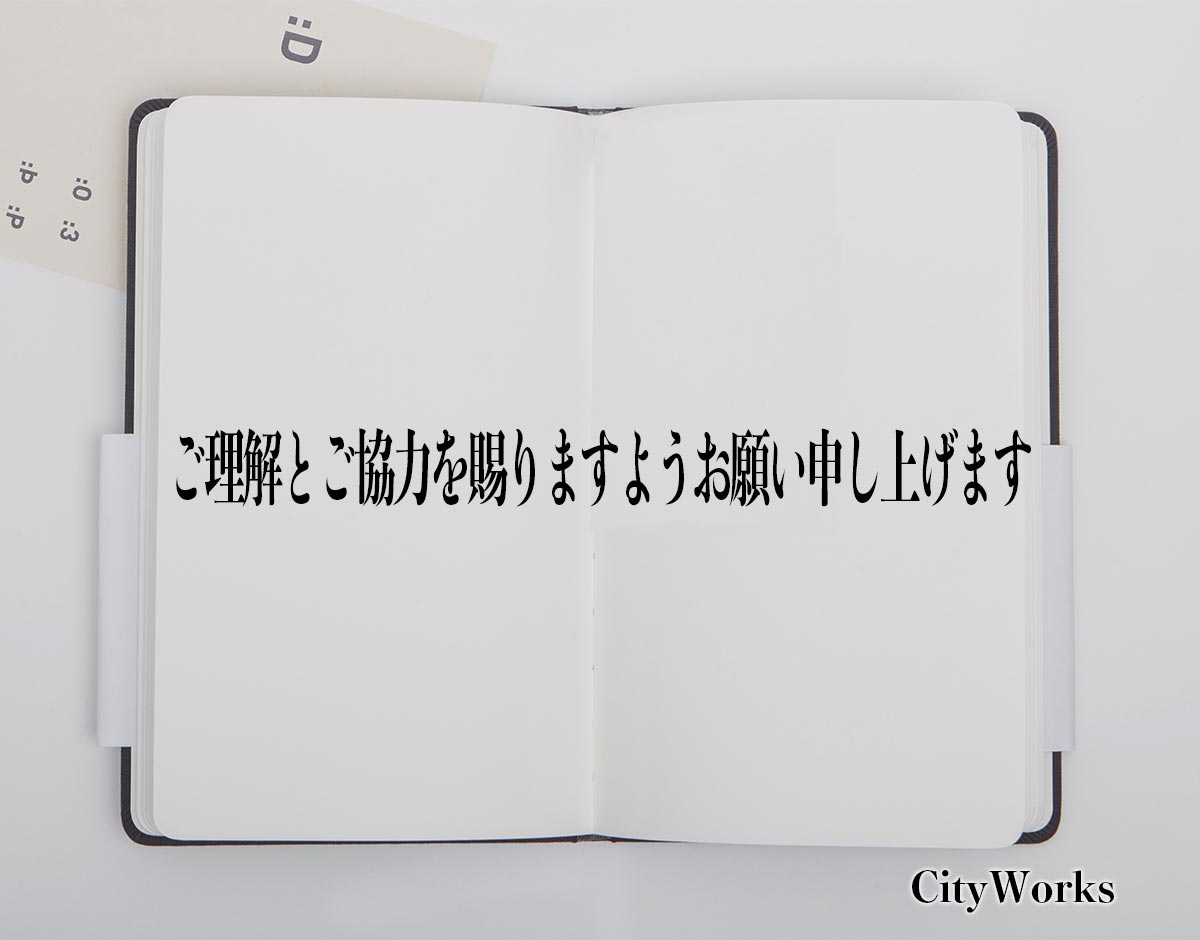 :D
:P
:O
:P
:3
ご理解とご協力を賜りますようお願い申し上げます
CityWorks